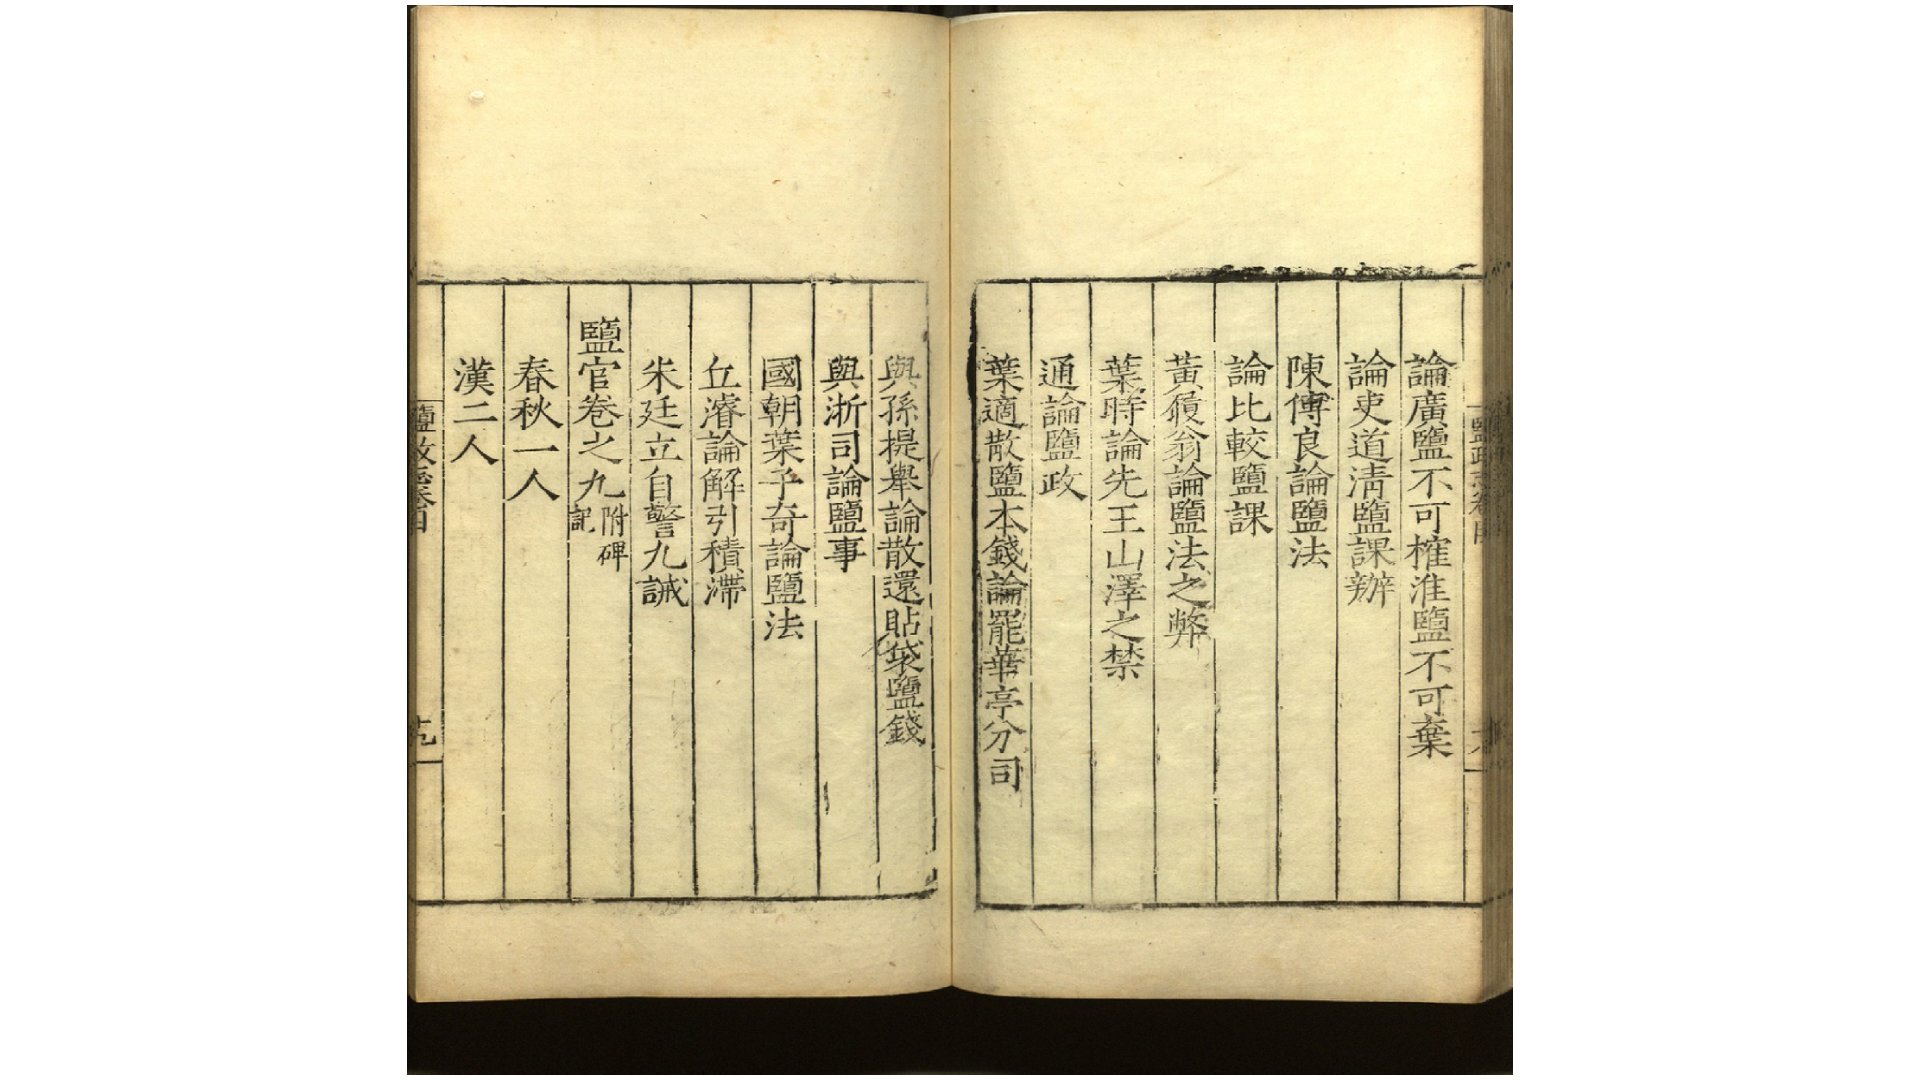 論廣鹽不可榷淮鹽不可棄
論吏道淸鹽課辦
陳傅良論鹽法
論比較鹽課
黃履翁論鹽法之弊
葉時論先王山澤之禁
通論鹽政
葉適散鹽本錢論罷華亭分司
與孫提舉論散還貼袋鹽錢
與浙司論鹽事
國朝葉子奇論鹽法
丘濬論解引積滯
朱廷立自警九誡
鹽官卷之九附碑記
春秋一人
漢二人